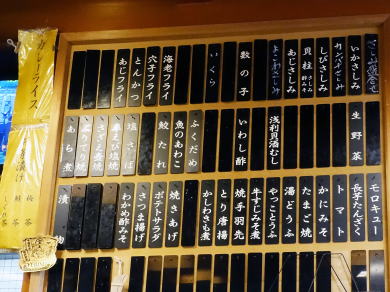 さしみ盛合せ
いかさしみ
カンパチさしみ
しびさしみ
貝柱 さしみ 酢みそ
あじさしみ
よこわさしみ
数の子
いくら
海老フライ
穴子フライ
とんかつ
あじフライ
生野菜
浅利貝酒むし
いわし酢
ふくだめ
魚のあわこ
鮫たれ
塩さば
あら煮
モロキュー
長芋たんざく
トマト
かにみそ
たまご焼
湯どうふ
やっことうふ
牛すじみそ煮
焼手羽先
とり唐揚
かしわきも煮
焼さあげ
ポテトサラダ
さつま揚
わかめ酢みそ
漬物
カレーライス
茶漬け
梅茶